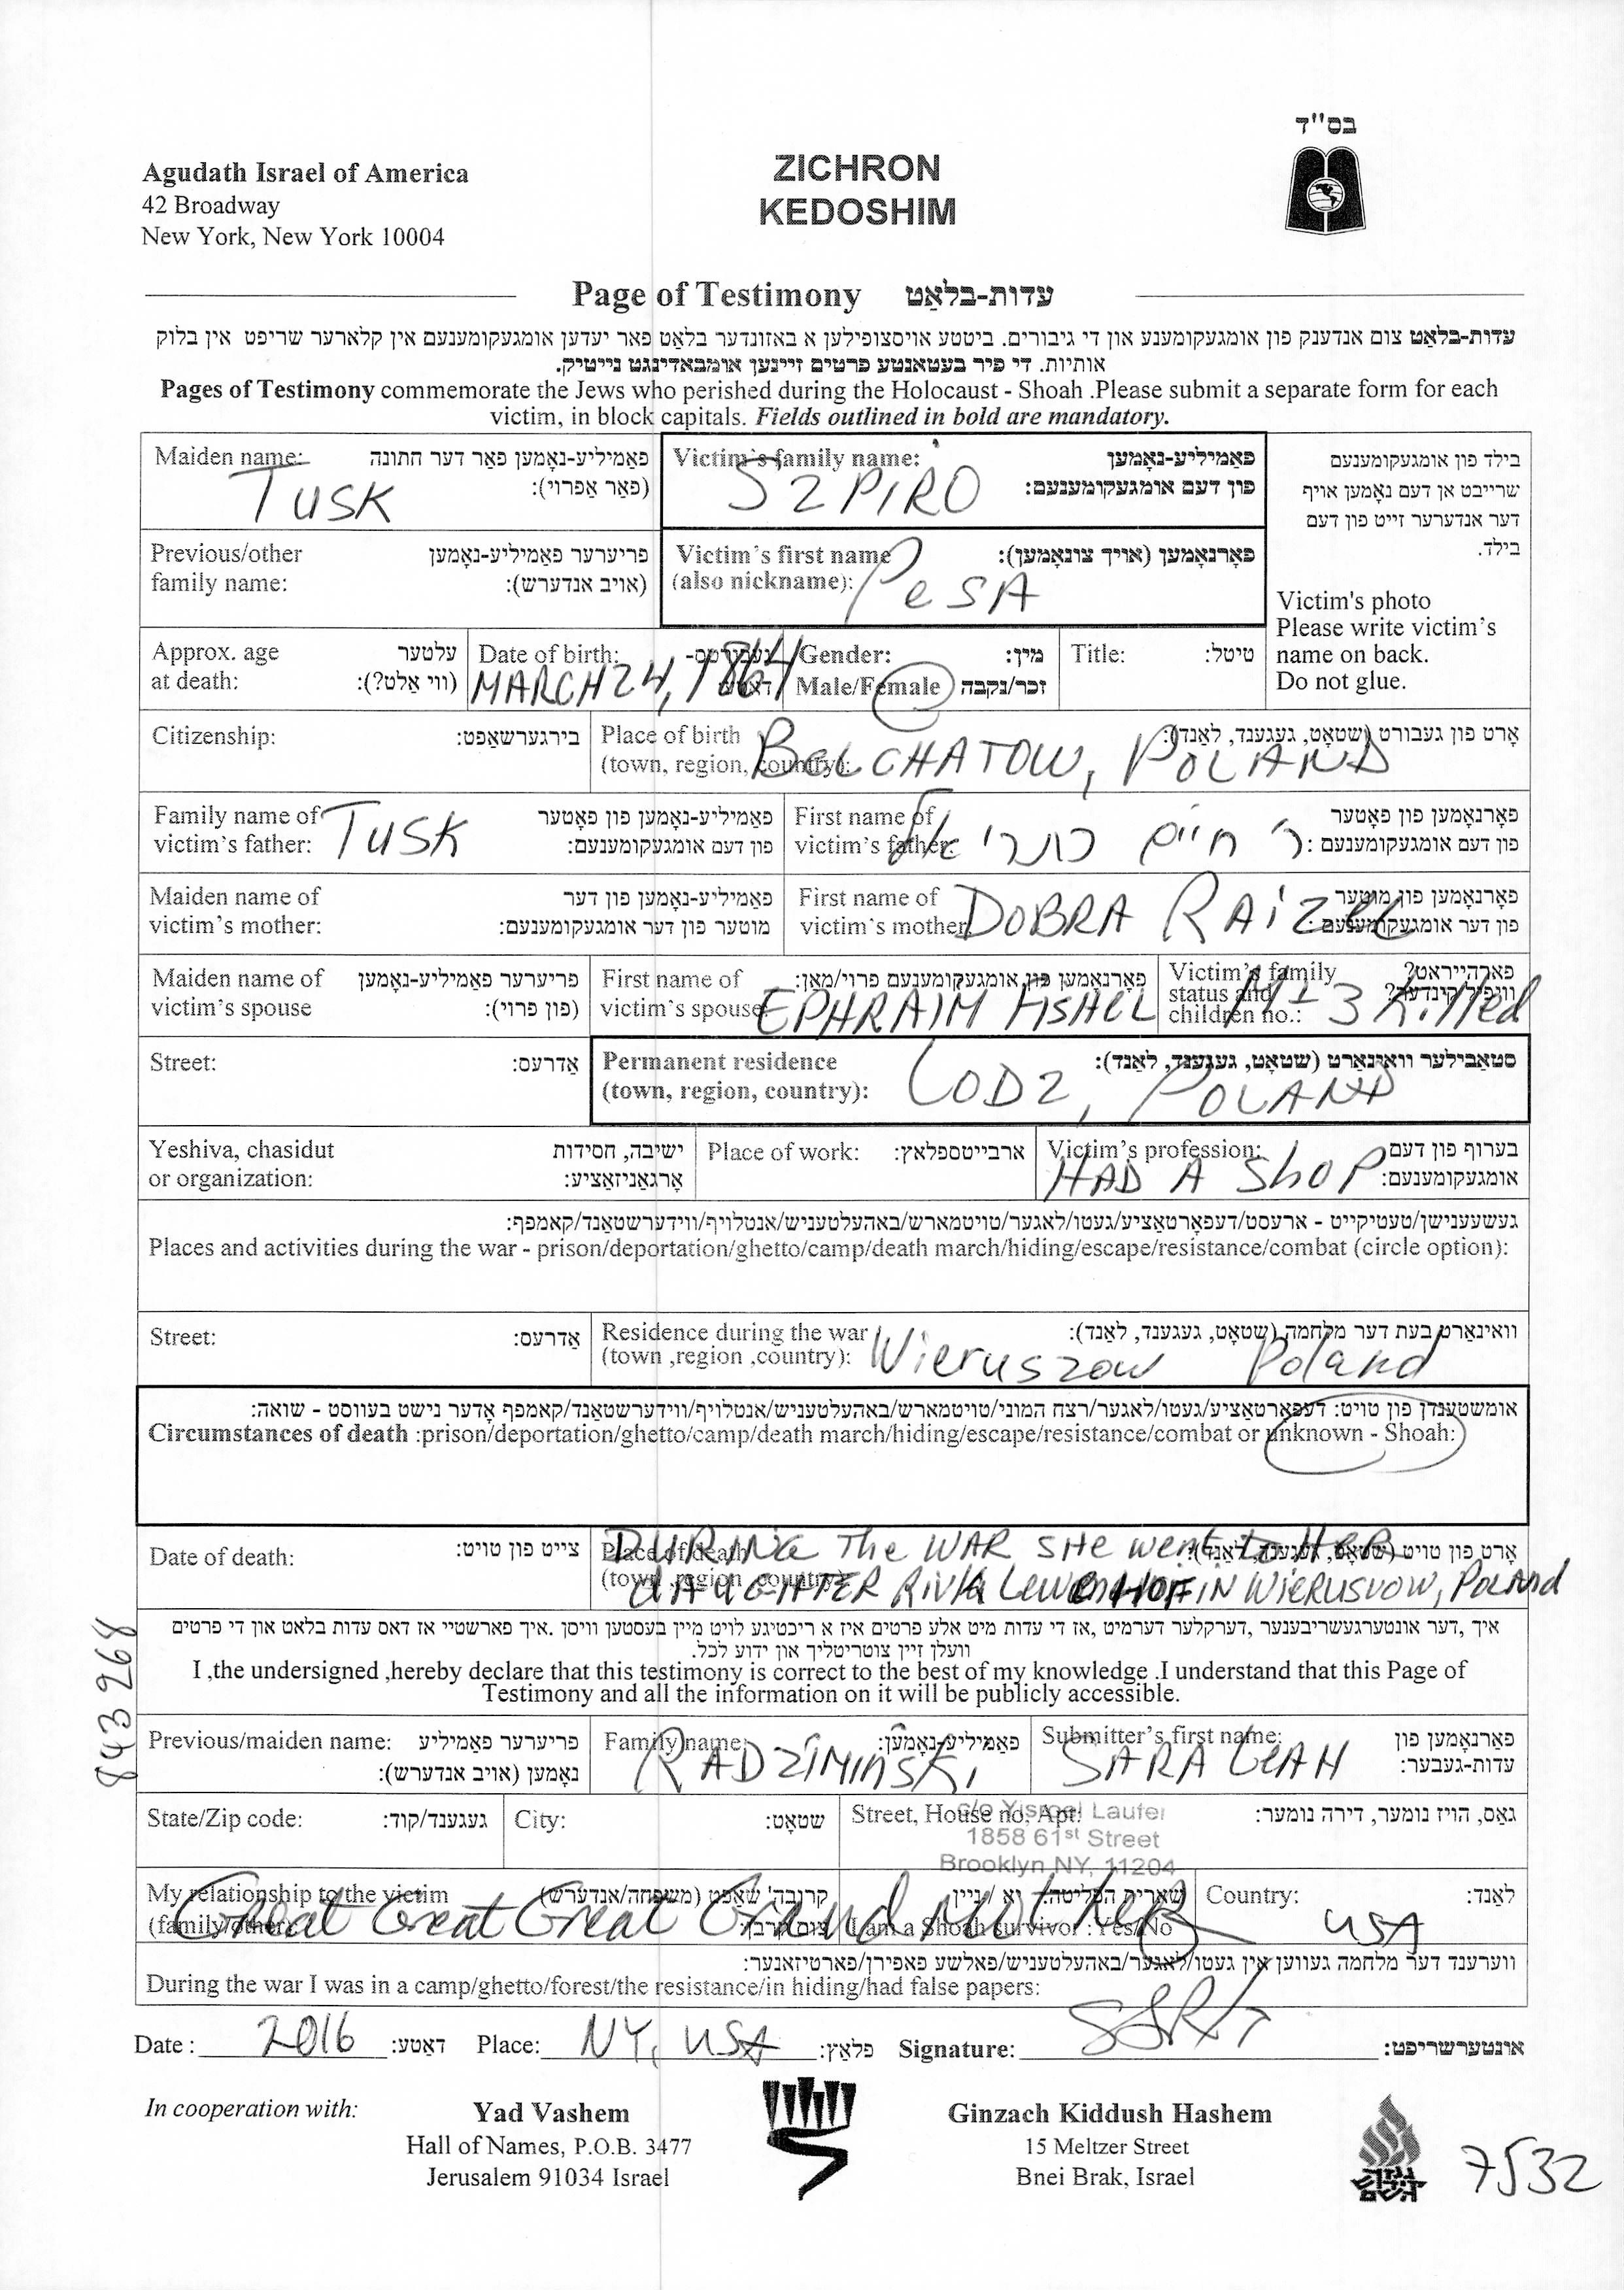 בס"ד
Agudath Israel of America
42 Broadway
New York, New York 10004
ZICHRON
KEDOSHIM
Page of Testimony עדות-בלאַט
עדות-בלאַט צום אנדענק פון אומגעקומענע און די גיבורים. ביטטע אויסצופילען א באזונדער בלאַט פאר יעדען אומגעקומענעם אין קלארער שריפט אין בלוק
אותיות. די פיר בעטאנטע פרטים זיינען אומבאדינגט נייטיק.
Pages of Testimony commemorate the Jews who perished during the Holocaust - Shoah .Please submit a separate form for each
victim, in block capitals. Fields outlined in bold are mandatory.
Maiden name: פאַמיליע-נאָמען פאר דער חתונה
(פאר אַפרוי):
TUSK
Victim's family name: פאַמיליע-נאָמען
פון דעם אומגעקומענעם:
SZPIRO
בילד פון אומגעקומענעם
שרייבט אן דעם נאָמען אויף
דער אנדערער זייט פון דעם
בילד.
Victim's photo
Please write victim's
name on back.
Do not glue.
Previous/other פריערער פאַמיליע-נאָמען
family name: (אויב אנדערש):
Victim's first name פאָרנאָמען (אויך צונאָמען):
(also nickname):
PeSA
Approx. age עלטער
at death: (ווי אלט?):
Date of birth: געבורטס-
דאַטע
MARCH 24, 1864
Gender: מין:
Male/Female זכר/נקבה
Title: טיטל:
Citizenship: בירגערשאַפט:
Place of birth אָרט פון געבורט (שטאָט, געגענד, לאַנד):
(town, region, country):
BELCHATOW, POLAND
Family name of פאַמיליע-נאָמען פון פאָטער
victim's father: פון דעם אומגעקומענעם:
TUSK
First name of פאָרנאָמען פון פאָטער
victim's father: פון דעם אומגעקומענעם:
ר' חיים
Maiden name of פאַמיליע-נאָמען פון דער
victim's mother: מוטער פון דער אומגעקומענעם:
First name of פאָרנאָמען פון מוטער
victim's mother: פון דער אומגעקומענעם:
DOBRA RAiZEL
Maiden name of פריערער פאַמיליע-נאָמען
victim's spouse (פון פרוי):
First name of פאָרנאָמען פון אומגעקומענעם פרוי/מאן:
victim's spouse:
EPHRAIM FISHEL
Victim's family פארהייראט?
status and וויפיל קינדער?
children no.:
M + 3 killed
Street: אַדרעס:
Permanent residence סטאַבילער וואוינאָרט (שטאָט, געגענד, לאַנד):
(town, region, country):
LODZ, POLAND
Yeshiva, chasidut ישיבה, חסידות
or organization: אָרגאַניזאַציע:
Place of work: ארבייטספלאץ:
Victim's profession: בערוף פון דעם
אומגעקומענעם:
HAD A ShOP
געשעענישן/טעטיקייט - ארעסט/דעפאָרטאַציע/געטו/לאגער/טויטמארש/באהעלטעניש/אנטלויף/ווידערשטאַנד/קאמפף:
Places and activities during the war - prison/deportation/ghetto/camp/death march/hiding/escape/resistance/combat (circle option):
Street: אַדרעס:
Residence during the war וואוינאָרט בעת דער מלחמה (שטאָט, געגענד, לאַנד):
(town ,region ,country):
Wieruszow Poland
אומשטענדן פון טויט: דעפאָרטאַציע/געטו/לאגער/רצח המוני/טויטמארש/באהעלטעניש/אנטלויף/ווידערשטאַנד/קאמפף אָדער נישט בעוווסט - שואה:
Circumstances of death :prison/deportation/ghetto/camp/death march/hiding/escape/resistance/combat or unknown - Shoah:
Date of death: צייט פון טויט:
Place of death אָרט פון טויט (שטאָט, געגענד, לאַנד):
(town, region, country):
DURING The WAR SHe weNt to HER
dAUGHTER RIVKA LeweNHOF IN WIERUSVOW, PoLANd
איך ,דער אונטערגעשריבענער ,דערקלער דערמיט ,אז די עדות מיט אלע פרטים איז א ריכטיגע לויט מיין בעסטען וויסן .איך פארשטיי אז דאס עדות בלאט און די פרטים
וועלן זיין צוטריטליך און ידוע לכל.
I ,the undersigned ,hereby declare that this testimony is correct to the best of my knowledge .I understand that this Page of
Testimony and all the information on it will be publicly accessible.
843268
Previous/maiden name: פריערער פאַמיליע
נאָמען (אויב אנדערש):
Family name: פאַמיליע-נאָמען:
RADZIMINSKI
Submitter's first name: פאָרנאָמען פון
עדות-געבער:
SARA LEAH
State/Zip code: געגענד/קוד:
City: שטאָט:
Street, House no. Apt: גאַס, הויז נומער, דירה נומער:
c/o Yisroel Laufer
1858 61st Street
Brooklyn NY, 11204
My relationship to the victim קרובה'שאַפט (משפחה/אנדערש)
(family/other): צום קרבן:
Great Great Great Grand Mother
שארית הפליטה: יא / ניין
I am a Shoah survivor : Yes/No
Country: לאַנד:
USA
ווערענד דער מלחמה געווען אין געטו/לאגער/באהעלטעניש/פאלשע פאפירן/פארטיזאנער:
During the war I was in a camp/ghetto/forest/the resistance/in hiding/had false papers:
Date : 2016 דאַטע: Place: NY, USA פלאַץ: Signature: אונטערשריפט:
In cooperation with:
Yad Vashem
Hall of Names, P.O.B. 3477
Jerusalem 91034 Israel
Ginzach Kiddush Hashem
15 Meltzer Street
Bnei Brak, Israel
7532